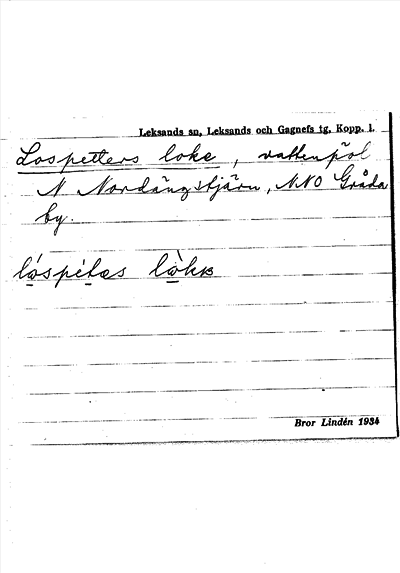 Leksands sn, Leksands och Gagnefs tg, Kopp. l.
Lospetters loke, vattenpöl
N Nordängstjärn, NNO Gråda
by.
Bror Lindén 1934